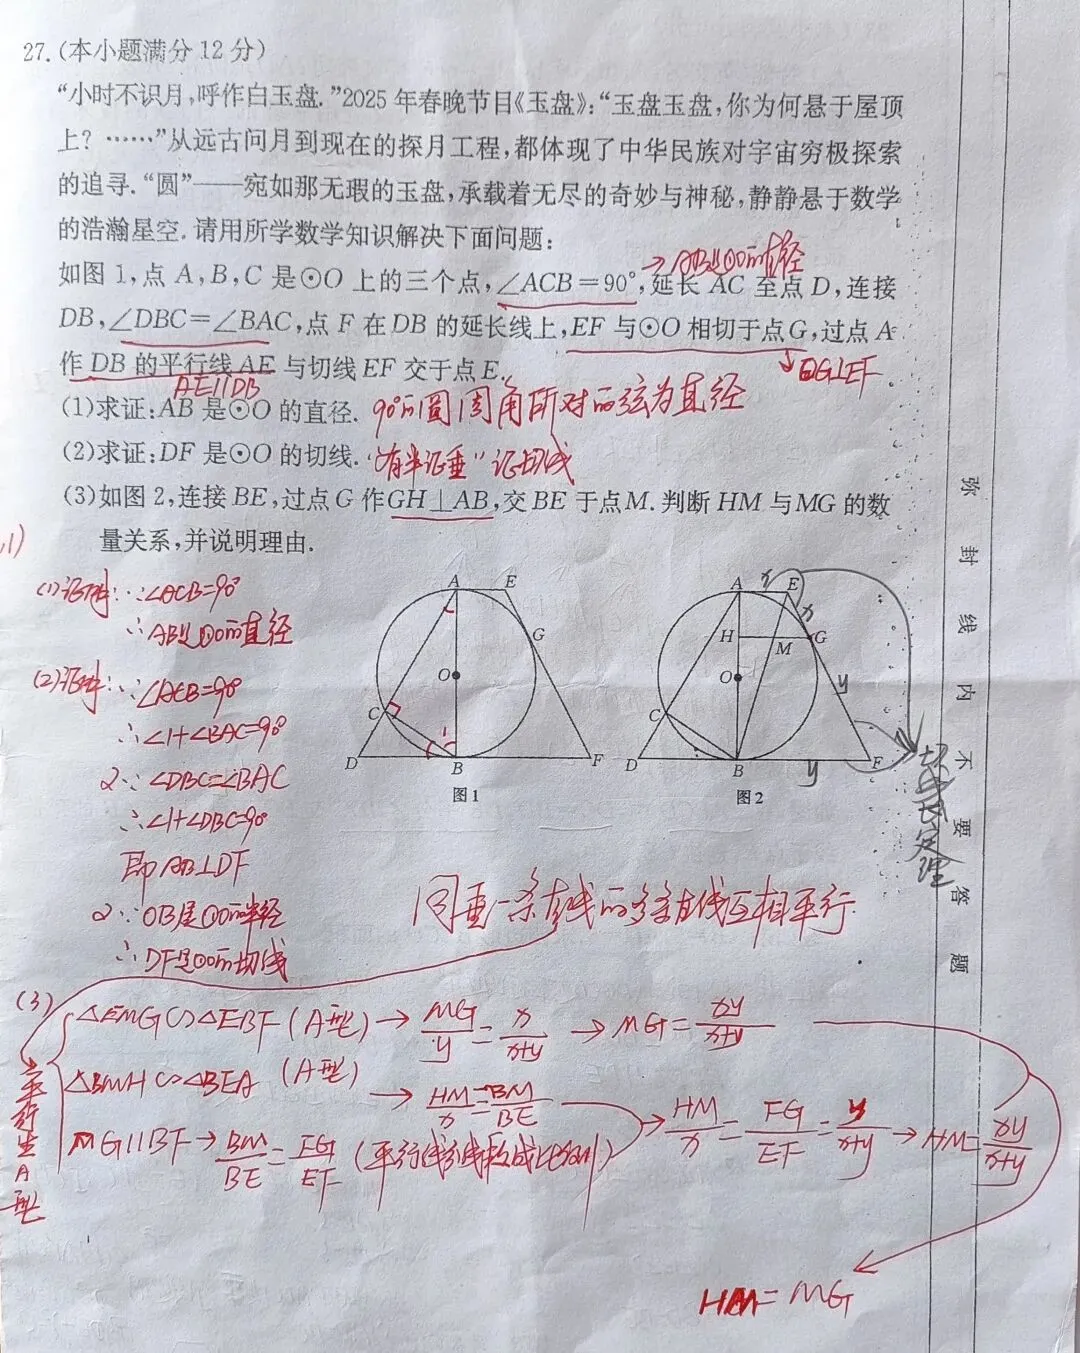 27.(本小题满分12分)
“小时不识月,呼作白玉盘.”2025年春晚节目《玉盘》:“玉盘玉盘,你为何悬于屋顶
上?……”从远古问月到现在的探月工程,都体现了中华民族对宇宙穷极探索
的追寻.“圆”——宛如那无瑕的玉盘,承载着无尽的奇妙与神秘,静静悬于数学
的浩瀚星空.请用所学数学知识解决下面问题:
→AB是⊙O的直径
如图1,点A,B,C是⊙O上的三个点,∠ACB=90°,延长AC至点D,连接
DB,∠DBC=∠BAC,点F在DB的延长线上,EF与⊙O相切于点G,过点A
作DB的平行线AE与切线EF交于点E.
AE∥DB
OG⊥EF
(1)求证:AB是⊙O的直径. 90°的圆周角所对的弦为直径
(2)求证:DF是⊙O的切线.“有半证垂”证切线
(3)如图2,连接BE,过点G作GH⊥AB,交BE于点M.判断HM与MG的数
量关系,并说明理由.
(1)证明:∵∠ACB=90°
∴AB是⊙O的直径
(2)证明:∵∠ACB=90°
∴∠1+∠BAC=90°
又∵∠DBC=∠BAC
∴∠1+∠DBC=90°
即AB⊥DF
又∵OB是⊙O的半径
∴DF是⊙O的切线
A E G O C D B F 1
图1
A E x x H M G O C y D B y F
图2
切线长定理
弥封线内不要答题
同垂一条直线的多条直线互相平行
(3)
△EMG∽△EBF(A型)→MG/y=x/(x+y)→MG=xy/(x+y)
△BMH∽△BEA(A型)→HM/x=BM/BE
MG∥BF→BM/BE=FG/EF(平行线分线段成比例)
→HM/x=FG/EF=y/(x+y)→HM=xy/(x+y)
平行生A型
HM=MG